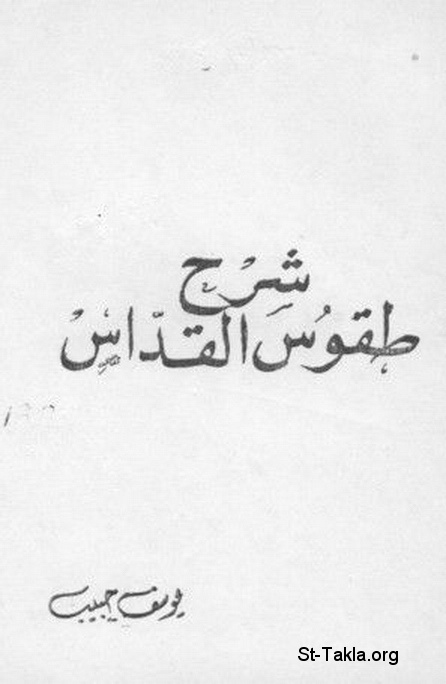 شرح
طقوس القدّاس
يوسف حبيب
St-Takla.org